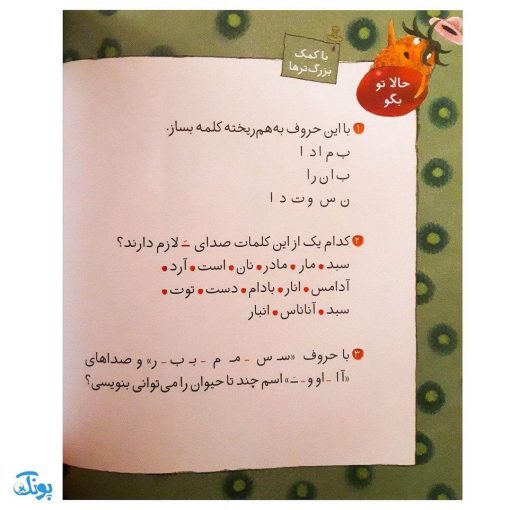 با کمک
بزرگ‌ترها
حالا تو
بگو
۱ با این حروف به‌هم‌ریخته کلمه بساز.
ب م ا د ا
ب ا ن ر ا
ن س و ت د ا
۲ کدام یک از این کلمات صدای ـَ لازم دارند؟
سبد • مار • مادر • نان • است • آرد •
آدامس • انار • بادام • دست • توت •
سبد • آناناس • انبار
۳ با حروف «سـ س ـ مـ م ـ بـ ب ـ ر» و صداهای
«آ ا ـ او و ـ ـَ» اسم چند تا حیوان را می‌توانی بنویسی؟
پونک